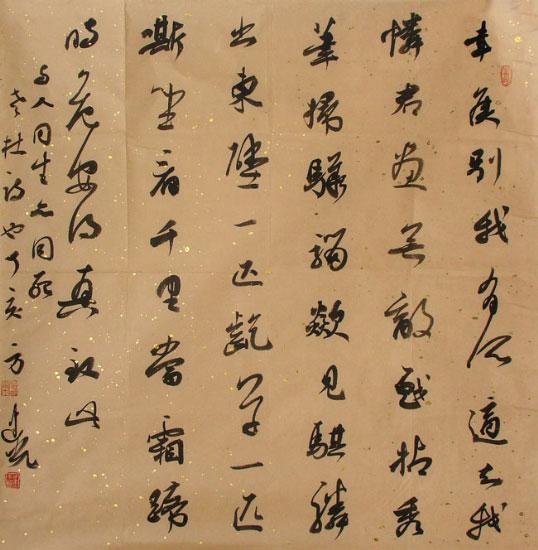 韋侯別我有所適知我
憐君畫無敵戲拈禿
筆掃驊騮欻見騏驎
出東壁一匹齕草一匹
嘶坐看千里當霜蹄
時危安得真致此
与人同生亦同死
老杜詩也丁亥方
建